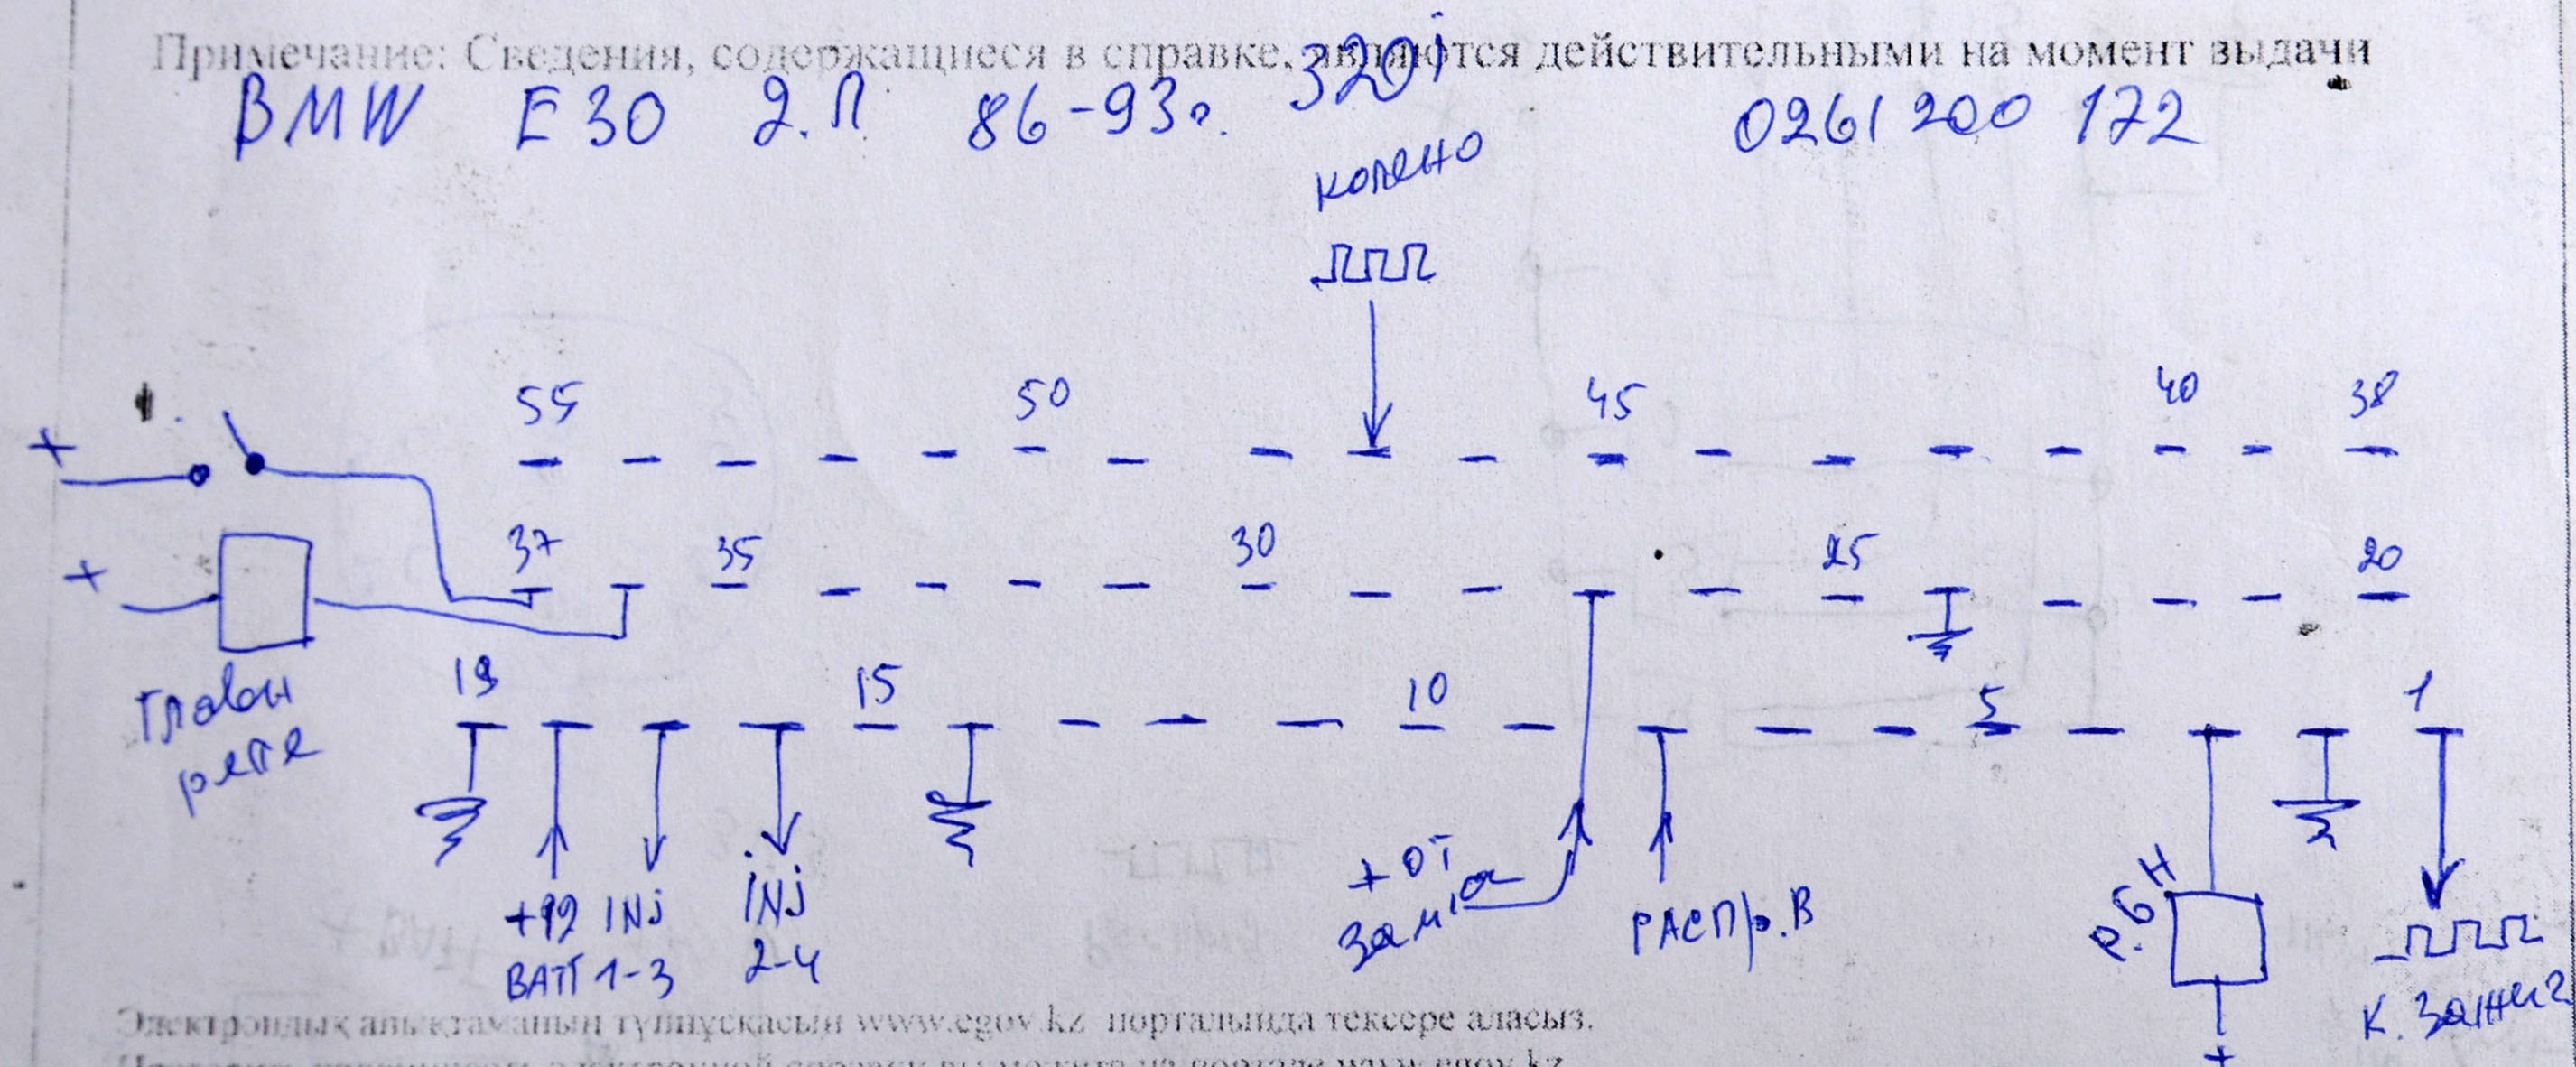 Примечание: Сведения, содержащиеся в справке, являются действительными на момент выдачи
BMW E30 2.Л 86-93г. 320i 0261 200 172
колено
55 50 45 40 38
+
37 35 30 25 20
+
Главн
реле
19 15 10 5 1
+12 INJ INJ
BATT 1-3 2-4
+ от
зам
РАСПР. В
Р. Б Н
+
К. Зажиг
Электрондық анықтаманың түпнұсқасын www.egov.kz порталында тексере аласыз.